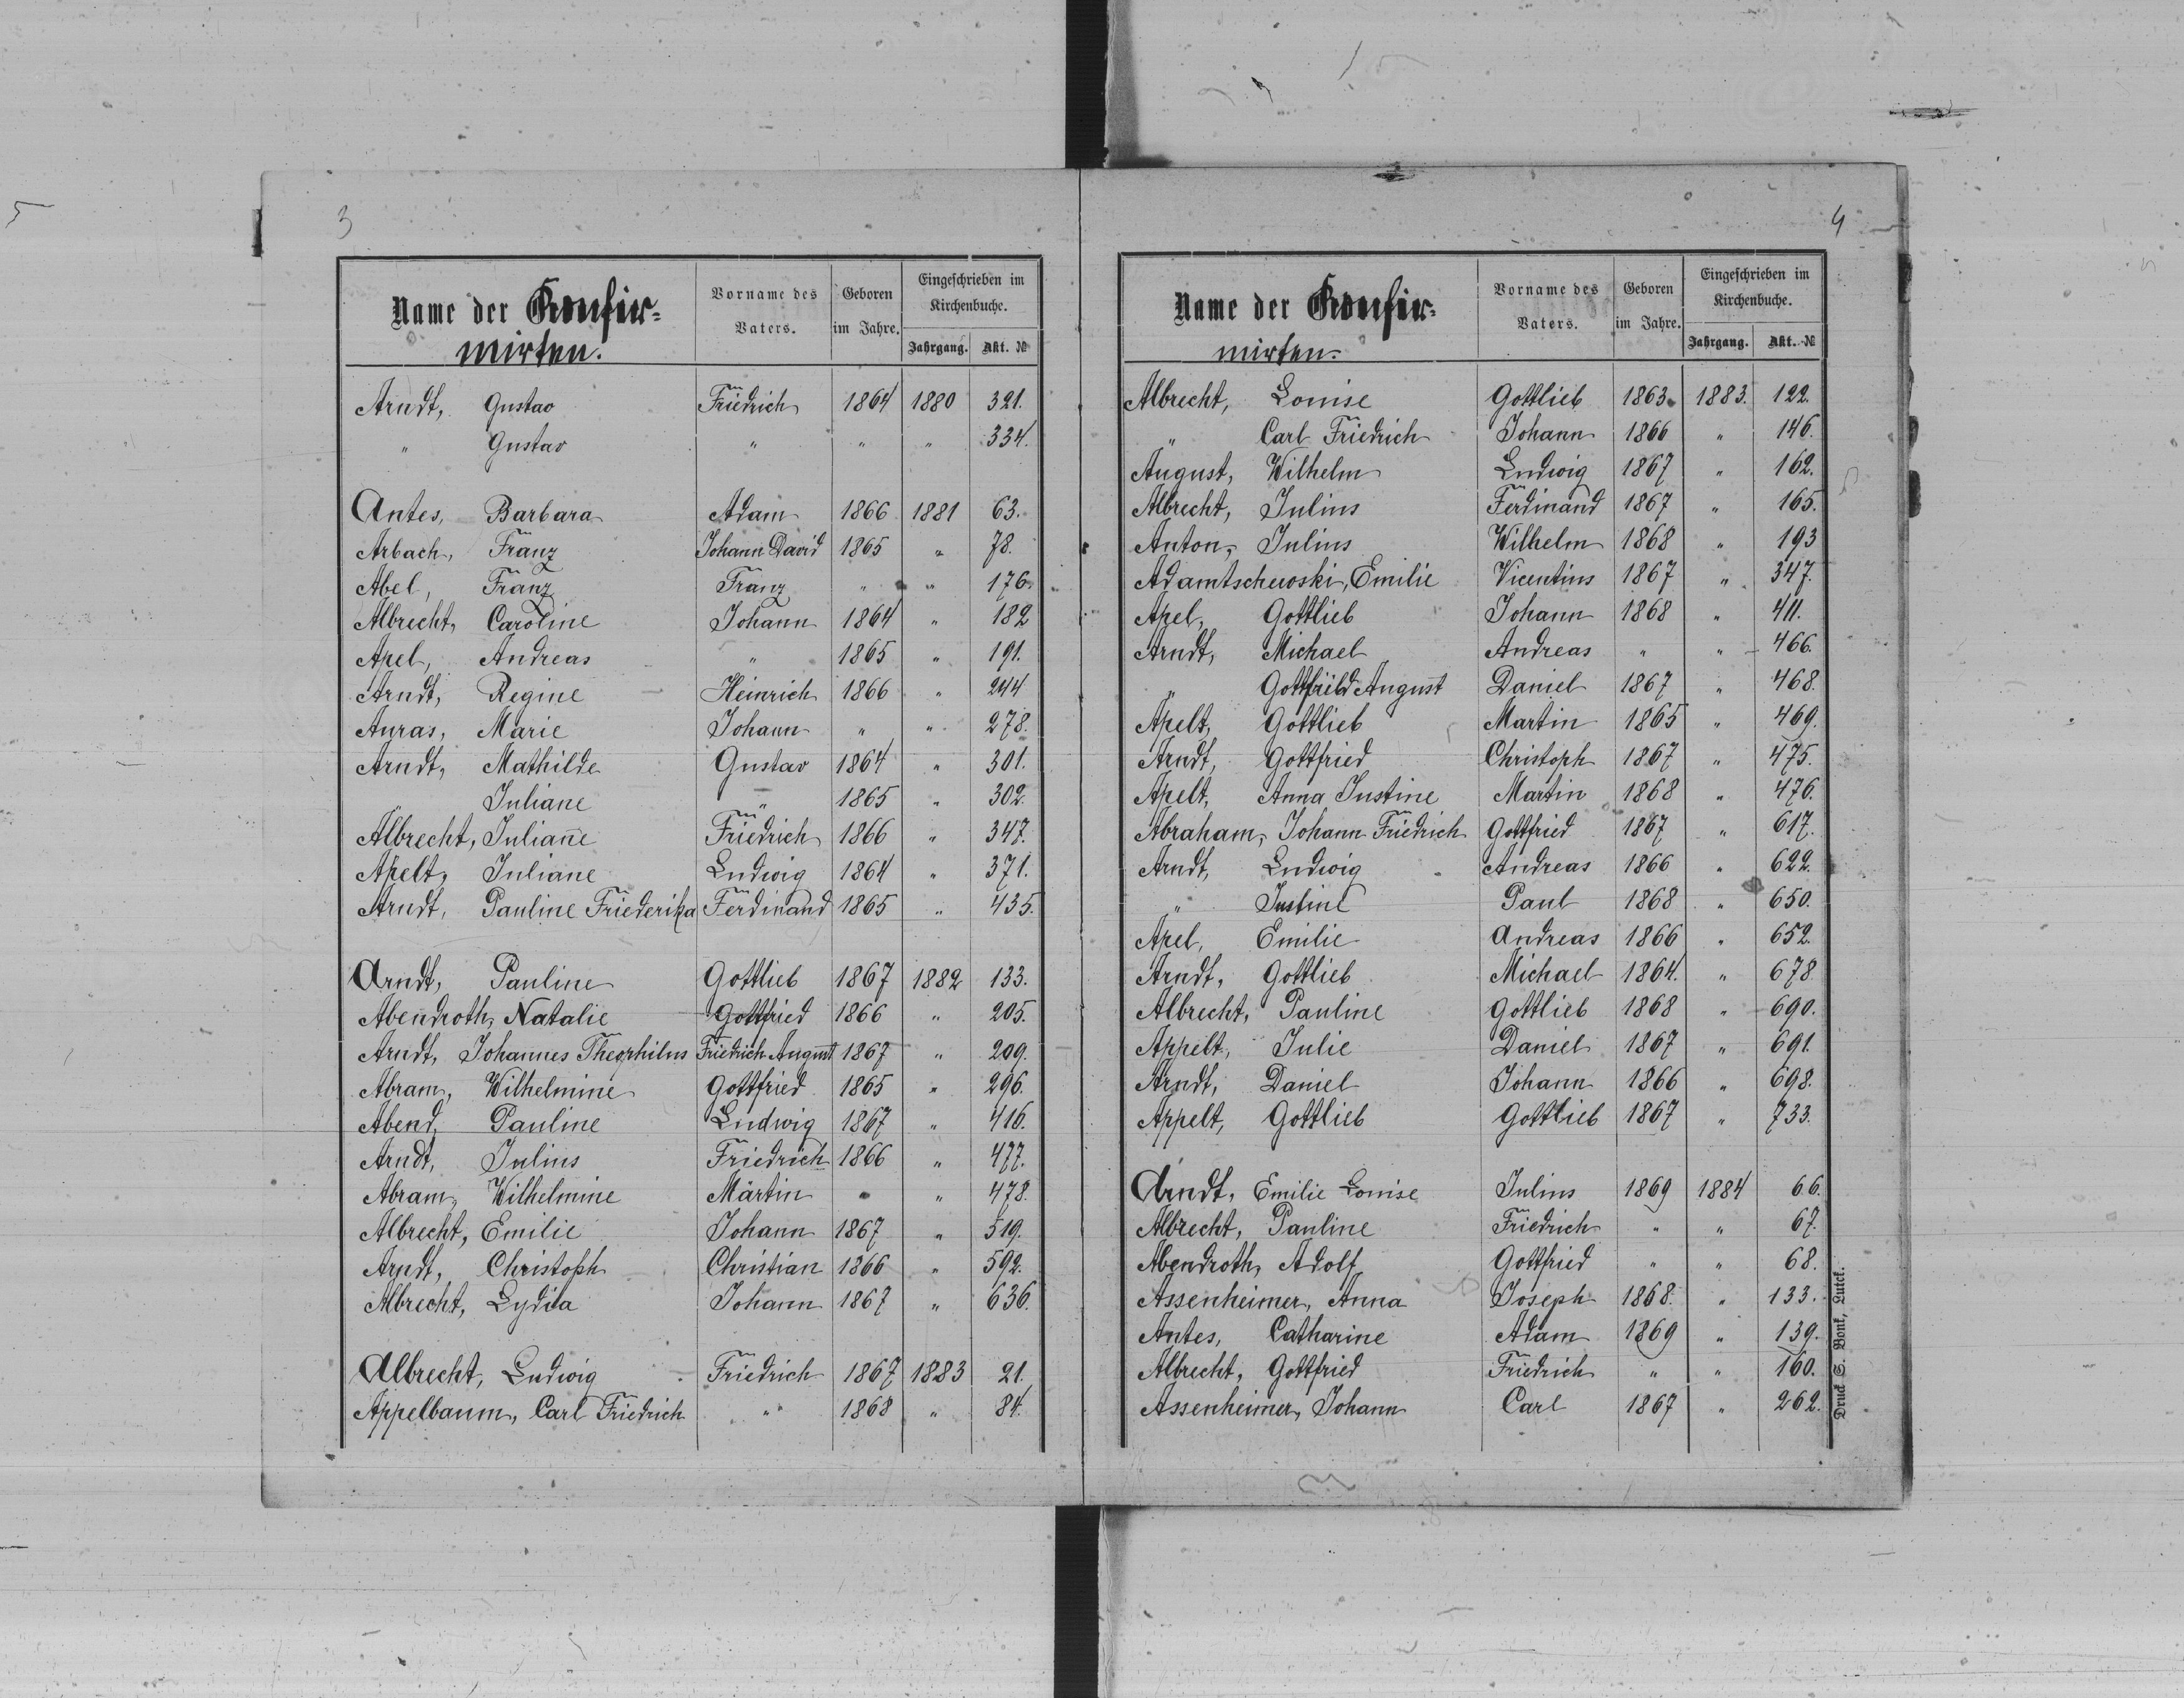 3
Name der Konfir-
mirten.
Vorname des
Vaters.
Geboren
im Jahre.
Eingeschrieben im
Kirchenbuche.
Jahrgang. Akt. №
Arndt, Gustav Friedrich 1864 1880 321.
" Gustav " " " 334.
Antes, Barbara Adam 1866 1881 63.
Arbach, Franz Johann David 1865 " 78.
Abel, Franz Franz " " 176.
Albrecht, Caroline Johann 1864 " 182
Apel, Andreas " 1865 " 191.
Arndt, Regine Heinrich 1866 " 244
Auras, Marie Johann " " 278.
Arndt, Mathilde Gustav 1864 " 301.
" Juliane " 1865 " 302.
Albrecht, Juliane Friedrich 1866 " 347.
Apelt, Juliane Ludwig 1864 " 371.
Arndt, Pauline Friederika Ferdinand 1865 " 435.
Arndt, Pauline Gottlieb 1867 1882 133.
Abendroth, Natalie Gottfried 1866 " 205.
Arndt, Johannes Theophilus Friedrich August 1867 " 209.
Abram, Wilhelmine Gottfried 1865 " 296.
Abend, Pauline Ludwig 1867 " 416.
Arndt, Julius Friedrich 1866 " 477.
Abram, Wilhelmine Martin " " 478.
Albrecht, Emilie Johann 1867 " 519.
Arndt, Christoph Christian 1866 " 592.
Albrecht, Lydia Johann 1867 " 636.
Albrecht, Ludwig Friedrich 1867 1883 21.
Appelbaum, Carl Friedrich " 1868 " 84.
4
Name der Konfir-
mirten.
Vorname des
Vaters.
Geboren
im Jahre.
Eingeschrieben im
Kirchenbuche.
Jahrgang. Akt. №
Albrecht, Louise Gottlieb 1863 1883. 122.
" Carl Friedrich Johann 1866 " 146.
August, Wilhelm Ludwig 1867 " 162.
Albrecht, Julius Ferdinand 1867 " 165.
Anton, Julius Wilhelm 1868 " 193
Adamtschewski, Emilie Vicentius 1867 " 347.
Apel, Gottlieb Johann 1868 " 411.
Arndt, Michael Andreas " " 466.
" Gottfrield August Daniel 1867 " 468.
Apelt, Gottlieb Martin 1865 " 469.
Arndt, Gottfried Christoph 1867 " 475.
Apelt, Anna Justine Martin 1868 " 476.
Abraham, Johann Friedrich Gottfried 1867 " 617.
Arndt, Ludwig Andreas 1866 " 622.
" Justine Paul 1868 " 650.
Apel, Emilie Andreas 1866 " 652.
Arndt, Gottlieb Michael 1864. " 678
Albrecht, Pauline Gottlieb 1868 " 690.
Appelt, Julie Daniel 1867 " 691.
Arndt, Daniel Johann 1866 " 698.
Appelt, Gottlieb Gottlieb 1867 " 733.
Arndt, Emilie Louise Julius 1869 1884 66.
Albrecht, Pauline Friedrich " " 67.
Abendroth, Adolf Gottfried " " 68.
Assenheimer, Anna Joseph 1868. " 133.
Antes, Catharine Adam 1869 " 139.
Albrecht, Gottfried Friedrich " " 160.
Assenheimer, Johann Carl 1867 " 262.
Druck S. Bonk, Luck.